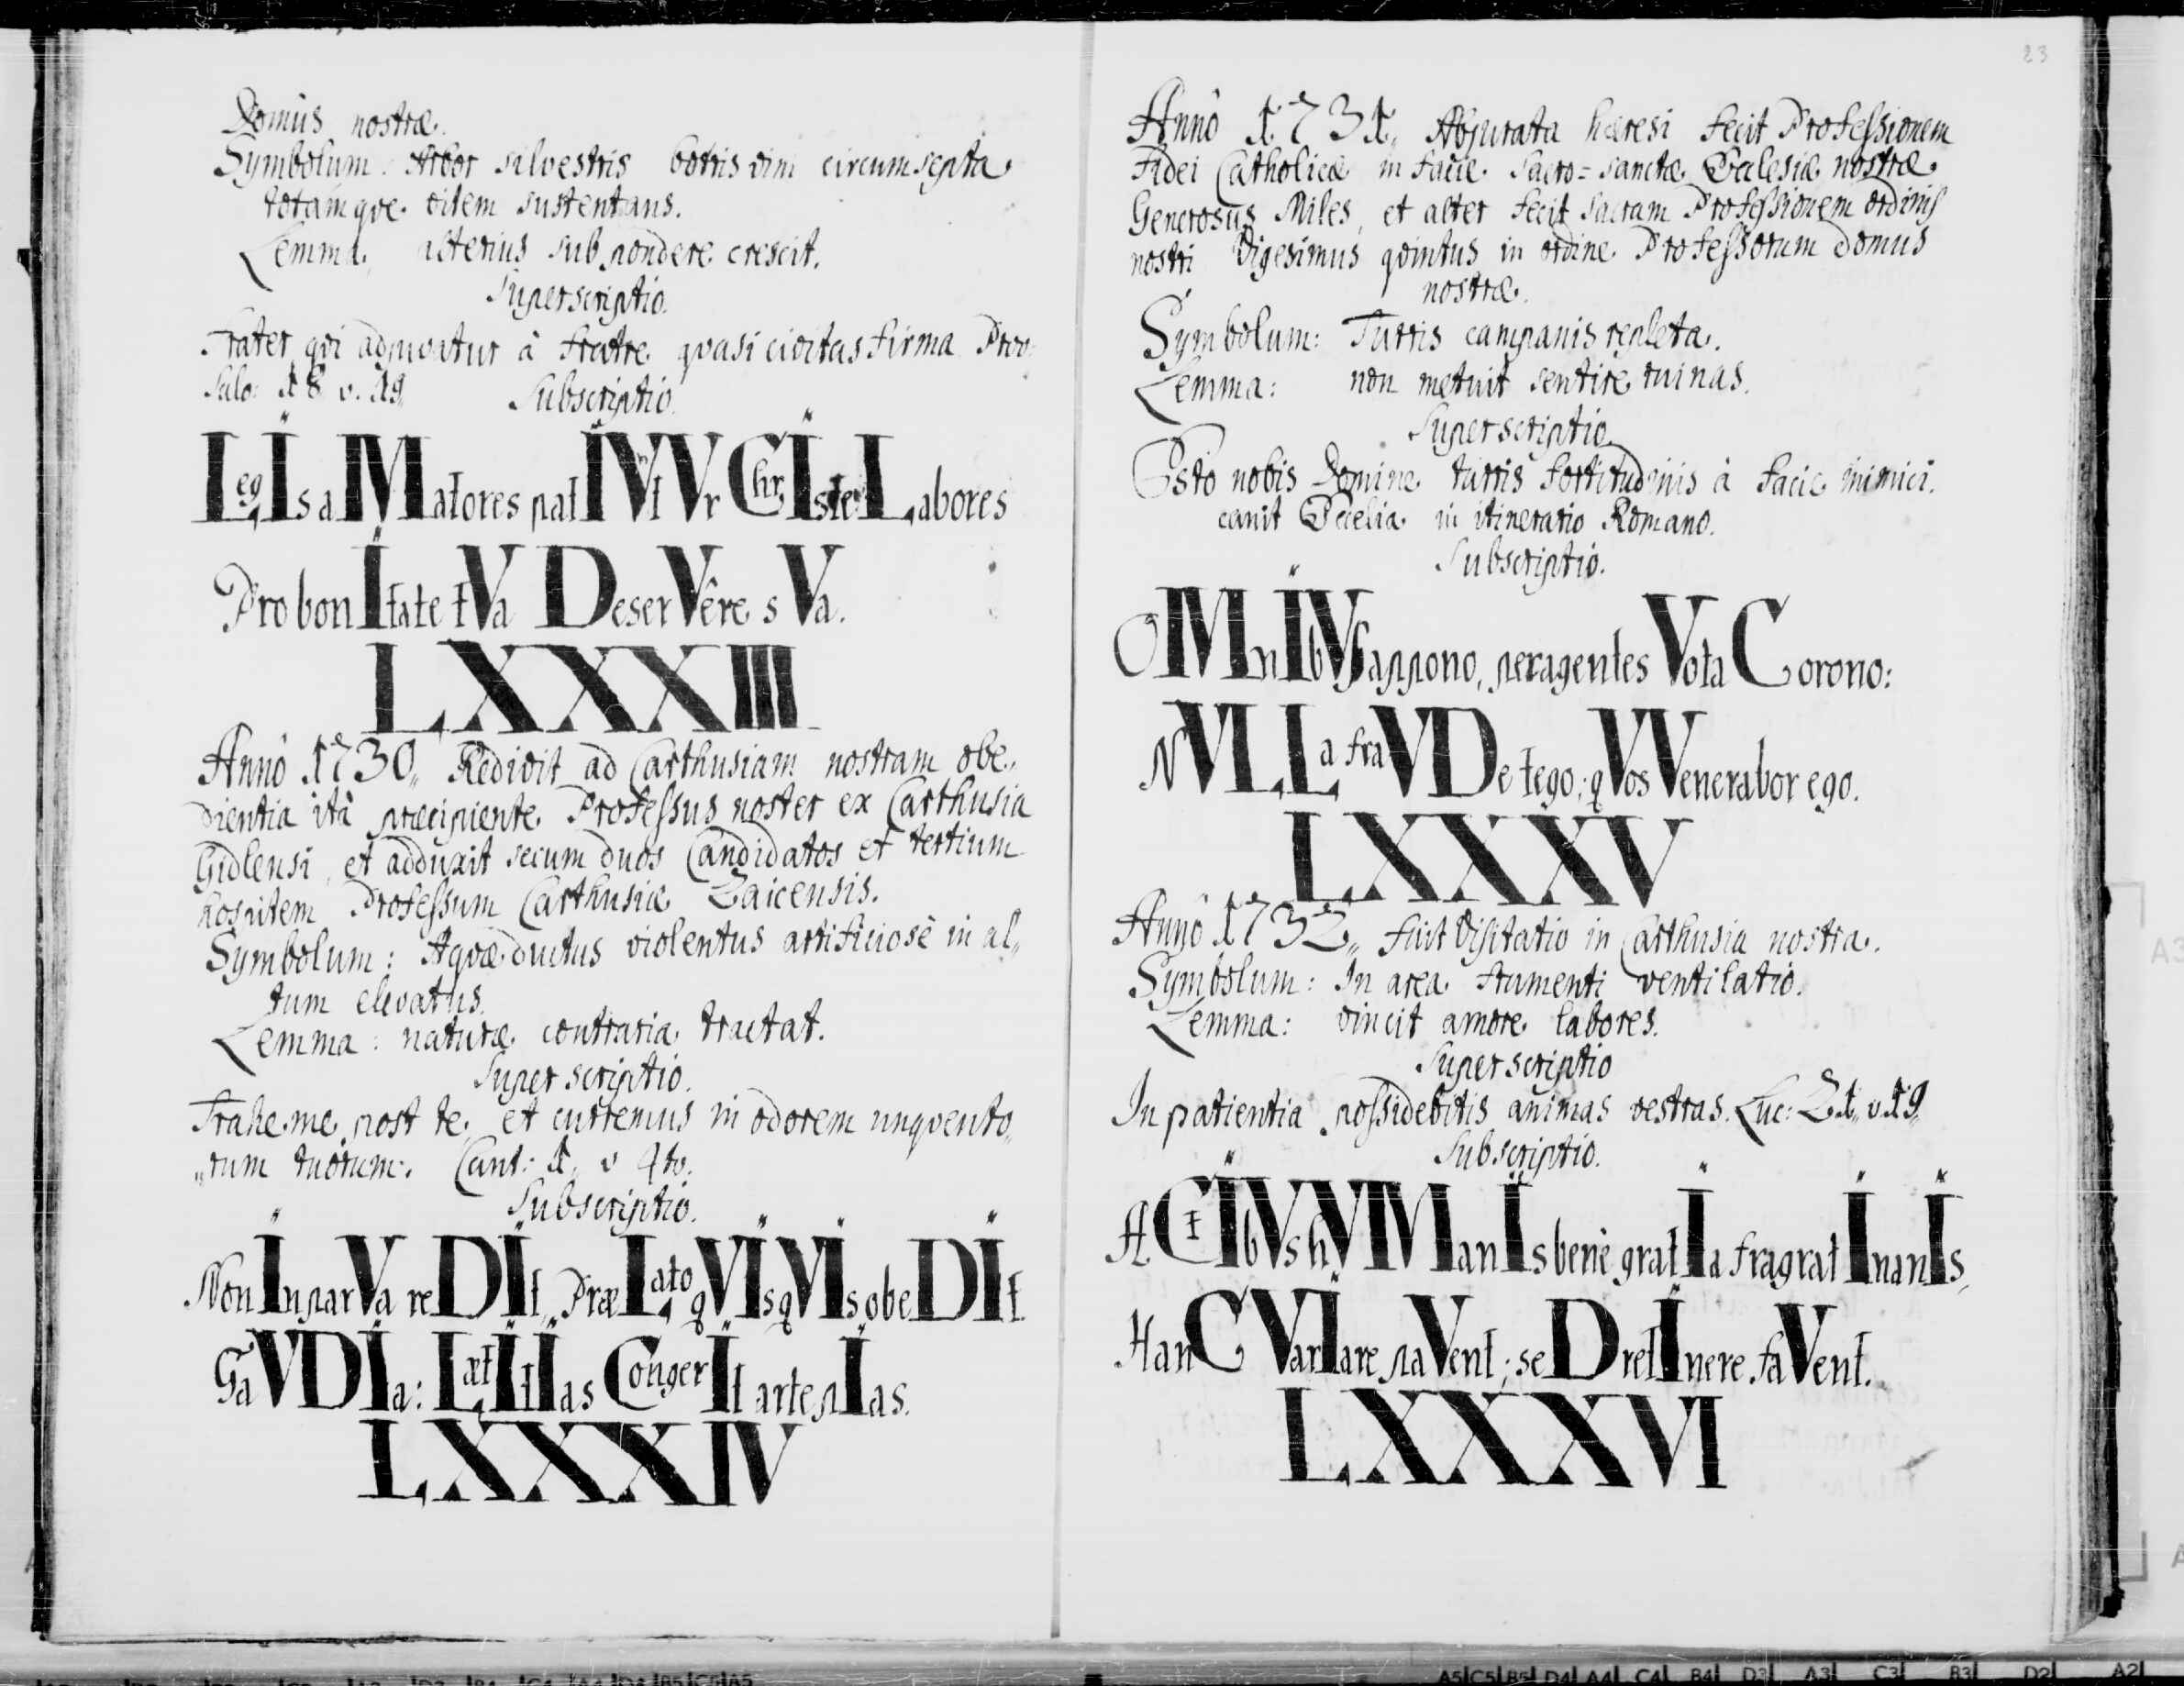 Domûs nostræ.
Symbolum: Arbor silvestris botris vini circumsepta
totamque vitem sustentans.
Lemma: alterius sub pondere crescit.
Superscriptio.
Frater qui adjuvatur à fratre quasi civitas firma Prov:
Salo: 18 v. 19.
Subscriptio.
LegIs aMatores patIVntVr ChrIste Labores
Pro bonItate tVa DeserVêre sVa.
LXXXIII
Annô 1730,, Redivit ad Carthusiam nostram obe,,
dientia itâ præcipiente Professus noster ex Carthusia
Gidlensi, et adduxit secum duos Candidatos et tertium
hospitem Professum Carthusiæ Zaicensis.
Symbolum: Aquæductus violentus artificiosè in al,,
tum elevatus.
Lemma: naturæ contraria tractat.
Superscriptio.
Trahe me post te, et curremus in odorem unguento,,
,,rum tuorum. Cant: 1. v 4to.
Subscriptio.
Non InparVa reDIt, PræLato qVIsqVIs obeDIt
GaVDIa: LætItIas CongerIt arte pIas.
LXXXIV
23
Annô 1731,, Abjurata hæresi fecit Professionem
Fidei Catholicæ in facie sacro=sanctæ Ecclesiæ nostræ
Generosus Miles, et alter fecit sacram Professionem ordinis
nostri Vigesimus quintus in ordine Professorum Domus
nostræ.
Symbolum: Turris campanis repleta.
Lemma: non metuit sentire ruinas.
Superscriptio.
Esto nobis Domine turris fortitudinis à facie inimici.
canit Ecclesia in itinerario Romano.
Subscriptio.
OMnIbVs appono, peragentes Vota Corono:
NVLLa fraVDe tego; qVos Venerabor ego.
LXXXV
Annô 1732,, fuit Visitatio in Carthusia nostra.
Symbolum: In area frumenti ventilatio.
Lemma: vincit amore labores.
Superscriptio
In patientia possidebitis animas vestras. Luc: 21,, v. 19,,
Subscriptio.
ACtIbVs hVManIs benè gratIa fragrat InanIs,
HanC VarIare paVent; seD retInere faVent.
LXXXVI